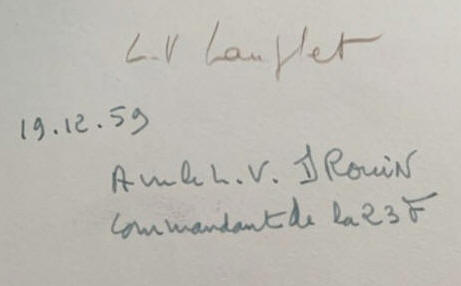 L.V Langlet
19.12.59
A vu le L.V. DRouiN
Commandant de la 23 F